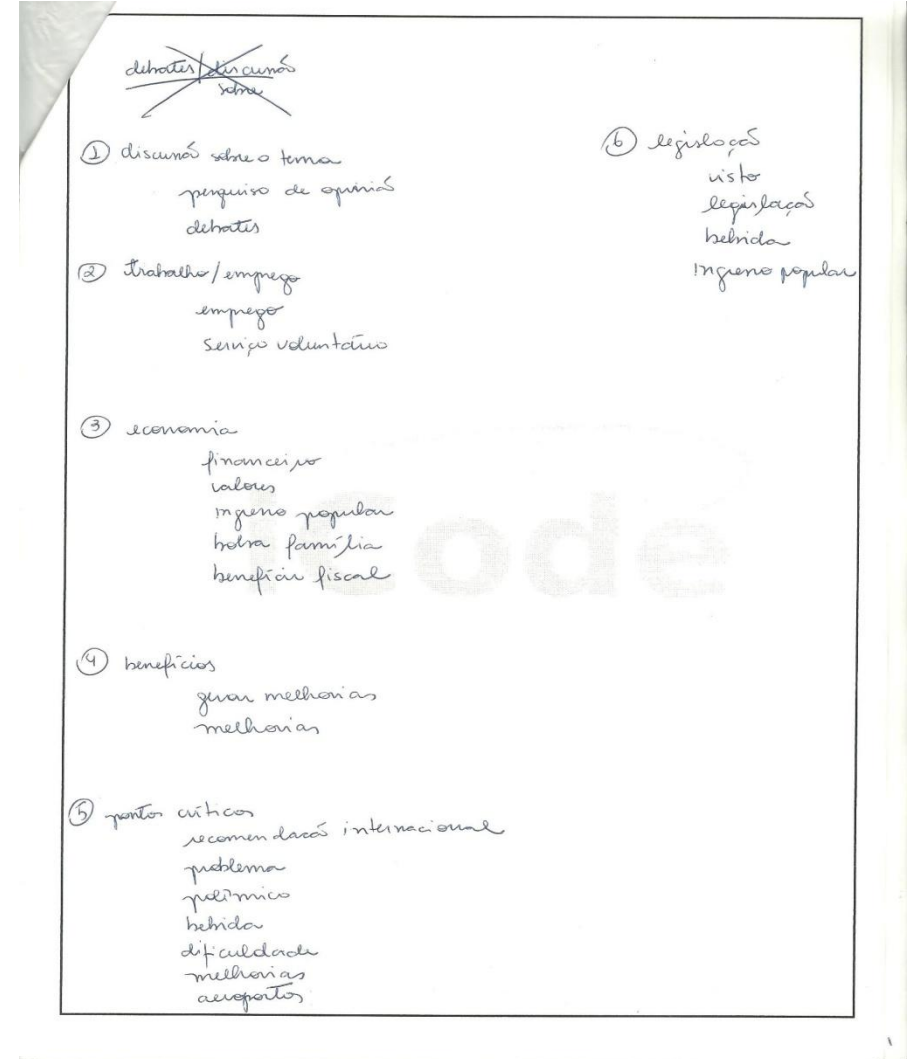 debates/discussão
sobre
① discussão sobre o tema
pesquisa de opinião
debates
② trabalho/emprego
emprego
serviço voluntário
③ economia
financeiro
valores
ingresso popular
bolsa família
benefício fiscal
④ benefícios
gerar melhorias
melhorias
⑤ pontos críticos
recomendacão internacional
problema
polêmico
bebida
dificuldade
melhorias
aeroportos
⑥ legislação
visto
legislação
bebida
ingresso popular
iCode